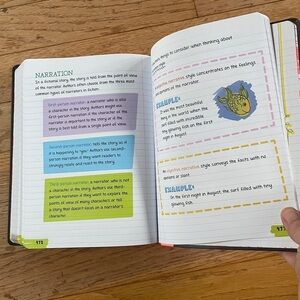 NARRATION
In a fictional story, the story is told from the point of view
of the narrator. Authors often choose from the three most
common types of narrators in fiction:
First-person narration: a narrator who is also
a character in the story. Authors might use
first-person narration if the character of the
narrator is important to the story or if the
story is best told from a single point of view.
Second-person narration: tells the story as if
it is happening to "you." Authors use second-
person narration if they want readers to
strongly relate and react to the story.
Third-person narration: a narrator who is not
a character in the story. Authors use third-
person narration if they want to explore the
points of view of many characters or tell
a story that doesn't focus on a narrator's
character.
472
things to consider when thinking about
style.
narrative style concentrates on the feelings
of the narrator.
EXAMPLE:
It was the most beautiful
thing in the world when the
surf filled with incredible
tiny glowing fish on the first
night in August!
An objective narrative style conveys the facts with no
opinions or slant.
EXAMPLE:
In the first night in August the surf filled with tiny
glowing fish.
473